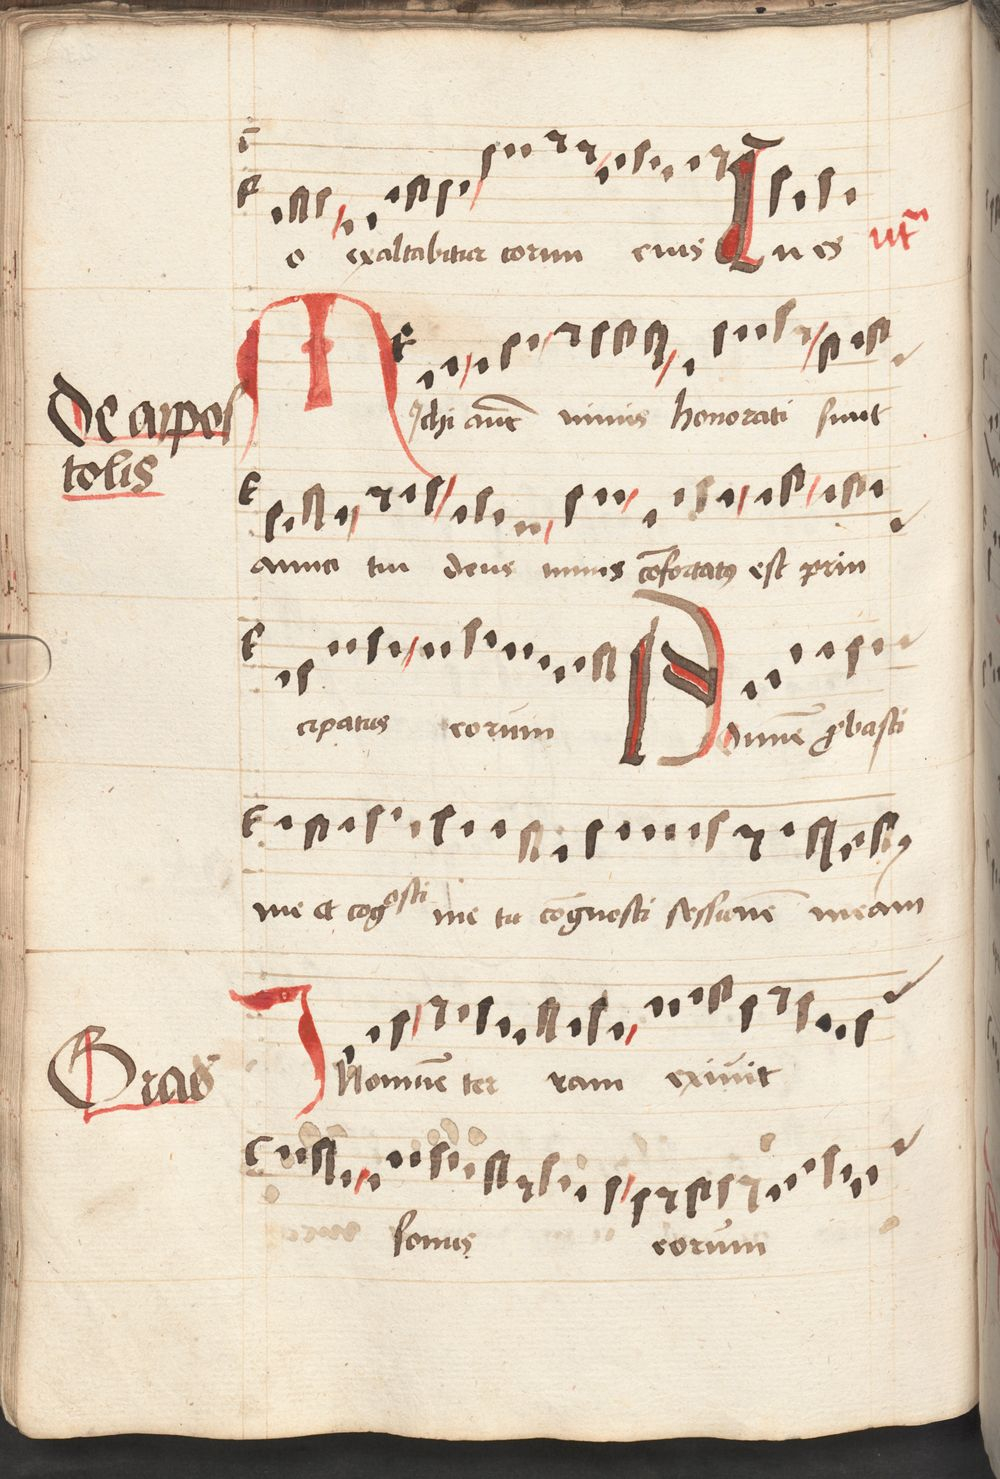 o exaltabitur cornu eius Laus ut
De appos
tolis
Michi aut nimis honorati sunt
amici tui deus nimis cōfortatꝯ est prin
cipatus eorum Domine ꝓbasti
me et cognosti me tu cognosti sessionē meam
Grad
In omnē ter ram exiuit
sonus eorum